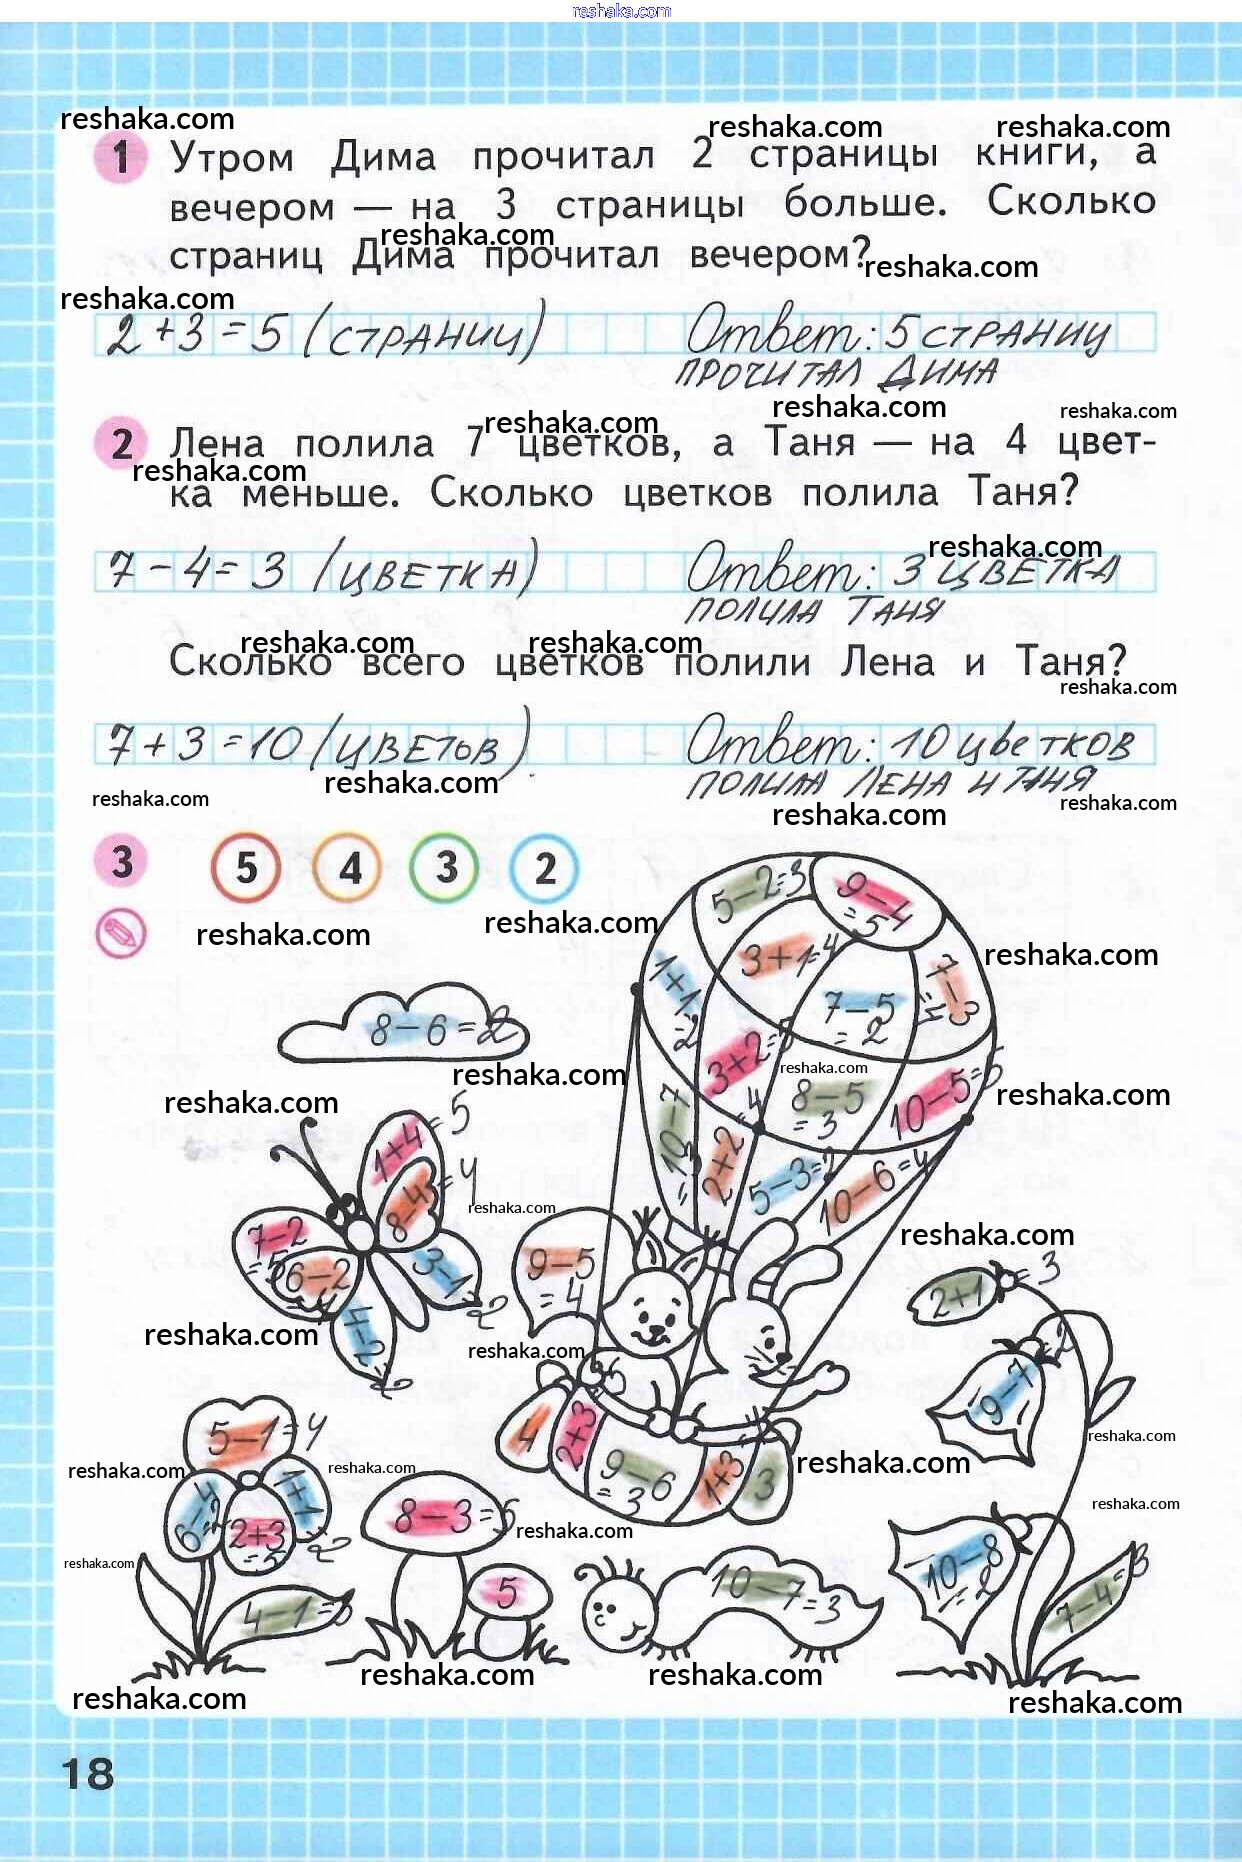 reshaka.com
reshaka.com
reshaka.com reshaka.com
1 Утром Дима прочитал 2 страницы книги, а
вечером — на 3 страницы больше. Сколько
reshaka.com
страниц Дима прочитал вечером?
reshaka.com
reshaka.com
2 + 3 = 5 (СТРАНИЦ) Ответ: 5 СТРАНИЦ
ПРОЧИТАЛ ДИМА
reshaka.com reshaka.com
reshaka.com
2 Лена полила 7 цветков, а Таня — на 4 цвет-
reshaka.com
ка меньше. Сколько цветков полила Таня?
reshaka.com
7 - 4 = 3 (ЦВЕТКА) Ответ: 3 ЦВЕТКА
ПОЛИЛА ТАНЯ
reshaka.com reshaka.com
Сколько всего цветков полили Лена и Таня?
reshaka.com
7 + 3 = 10 (ЦВЕТОВ) Ответ: 10 цветков
ПОЛИЛА ЛЕНА И ТАНЯ
reshaka.com
reshaka.com reshaka.com
reshaka.com
3 5 4 3 2
reshaka.com reshaka.com
reshaka.com
5-2=3
9-4
=5
3+1=4
1+1
=2
7-5
=2
7-3
=4
8-6=2
reshaka.com
3+2=5
reshaka.com
8-5
=3
10-5=5
reshaka.com
reshaka.com
1+4=5
10-7
=3
2+2=4
5-3=2
10-6=4
8-4=4
reshaka.com
7-2
=5
6-2
=4
3-1=2
4-2
=2
9-5
=4
reshaka.com
2+1=3
reshaka.com
reshaka.com
9-7=2
5-1=4
4
2+3
=5
9-6
=3
1+3
3
reshaka.com
reshaka.com
reshaka.com reshaka.com
6-4
=2
1+1
=2
2+3
=5
8-3=5
reshaka.com
reshaka.com
reshaka.com
5
10-7=3
10-8
=2
7-4=3
4-1=3
reshaka.com reshaka.com
reshaka.com
reshaka.com
18